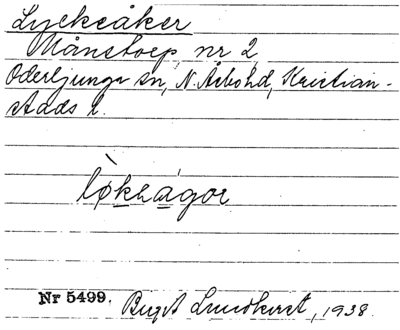 Lyckeåker
Månstorp nr 2
Oderljunga sn, N. Åsbo hd, Kristian-
stads l.
lø̀kəágor
Nr 5499. Birgit Lundkvist, 1938.